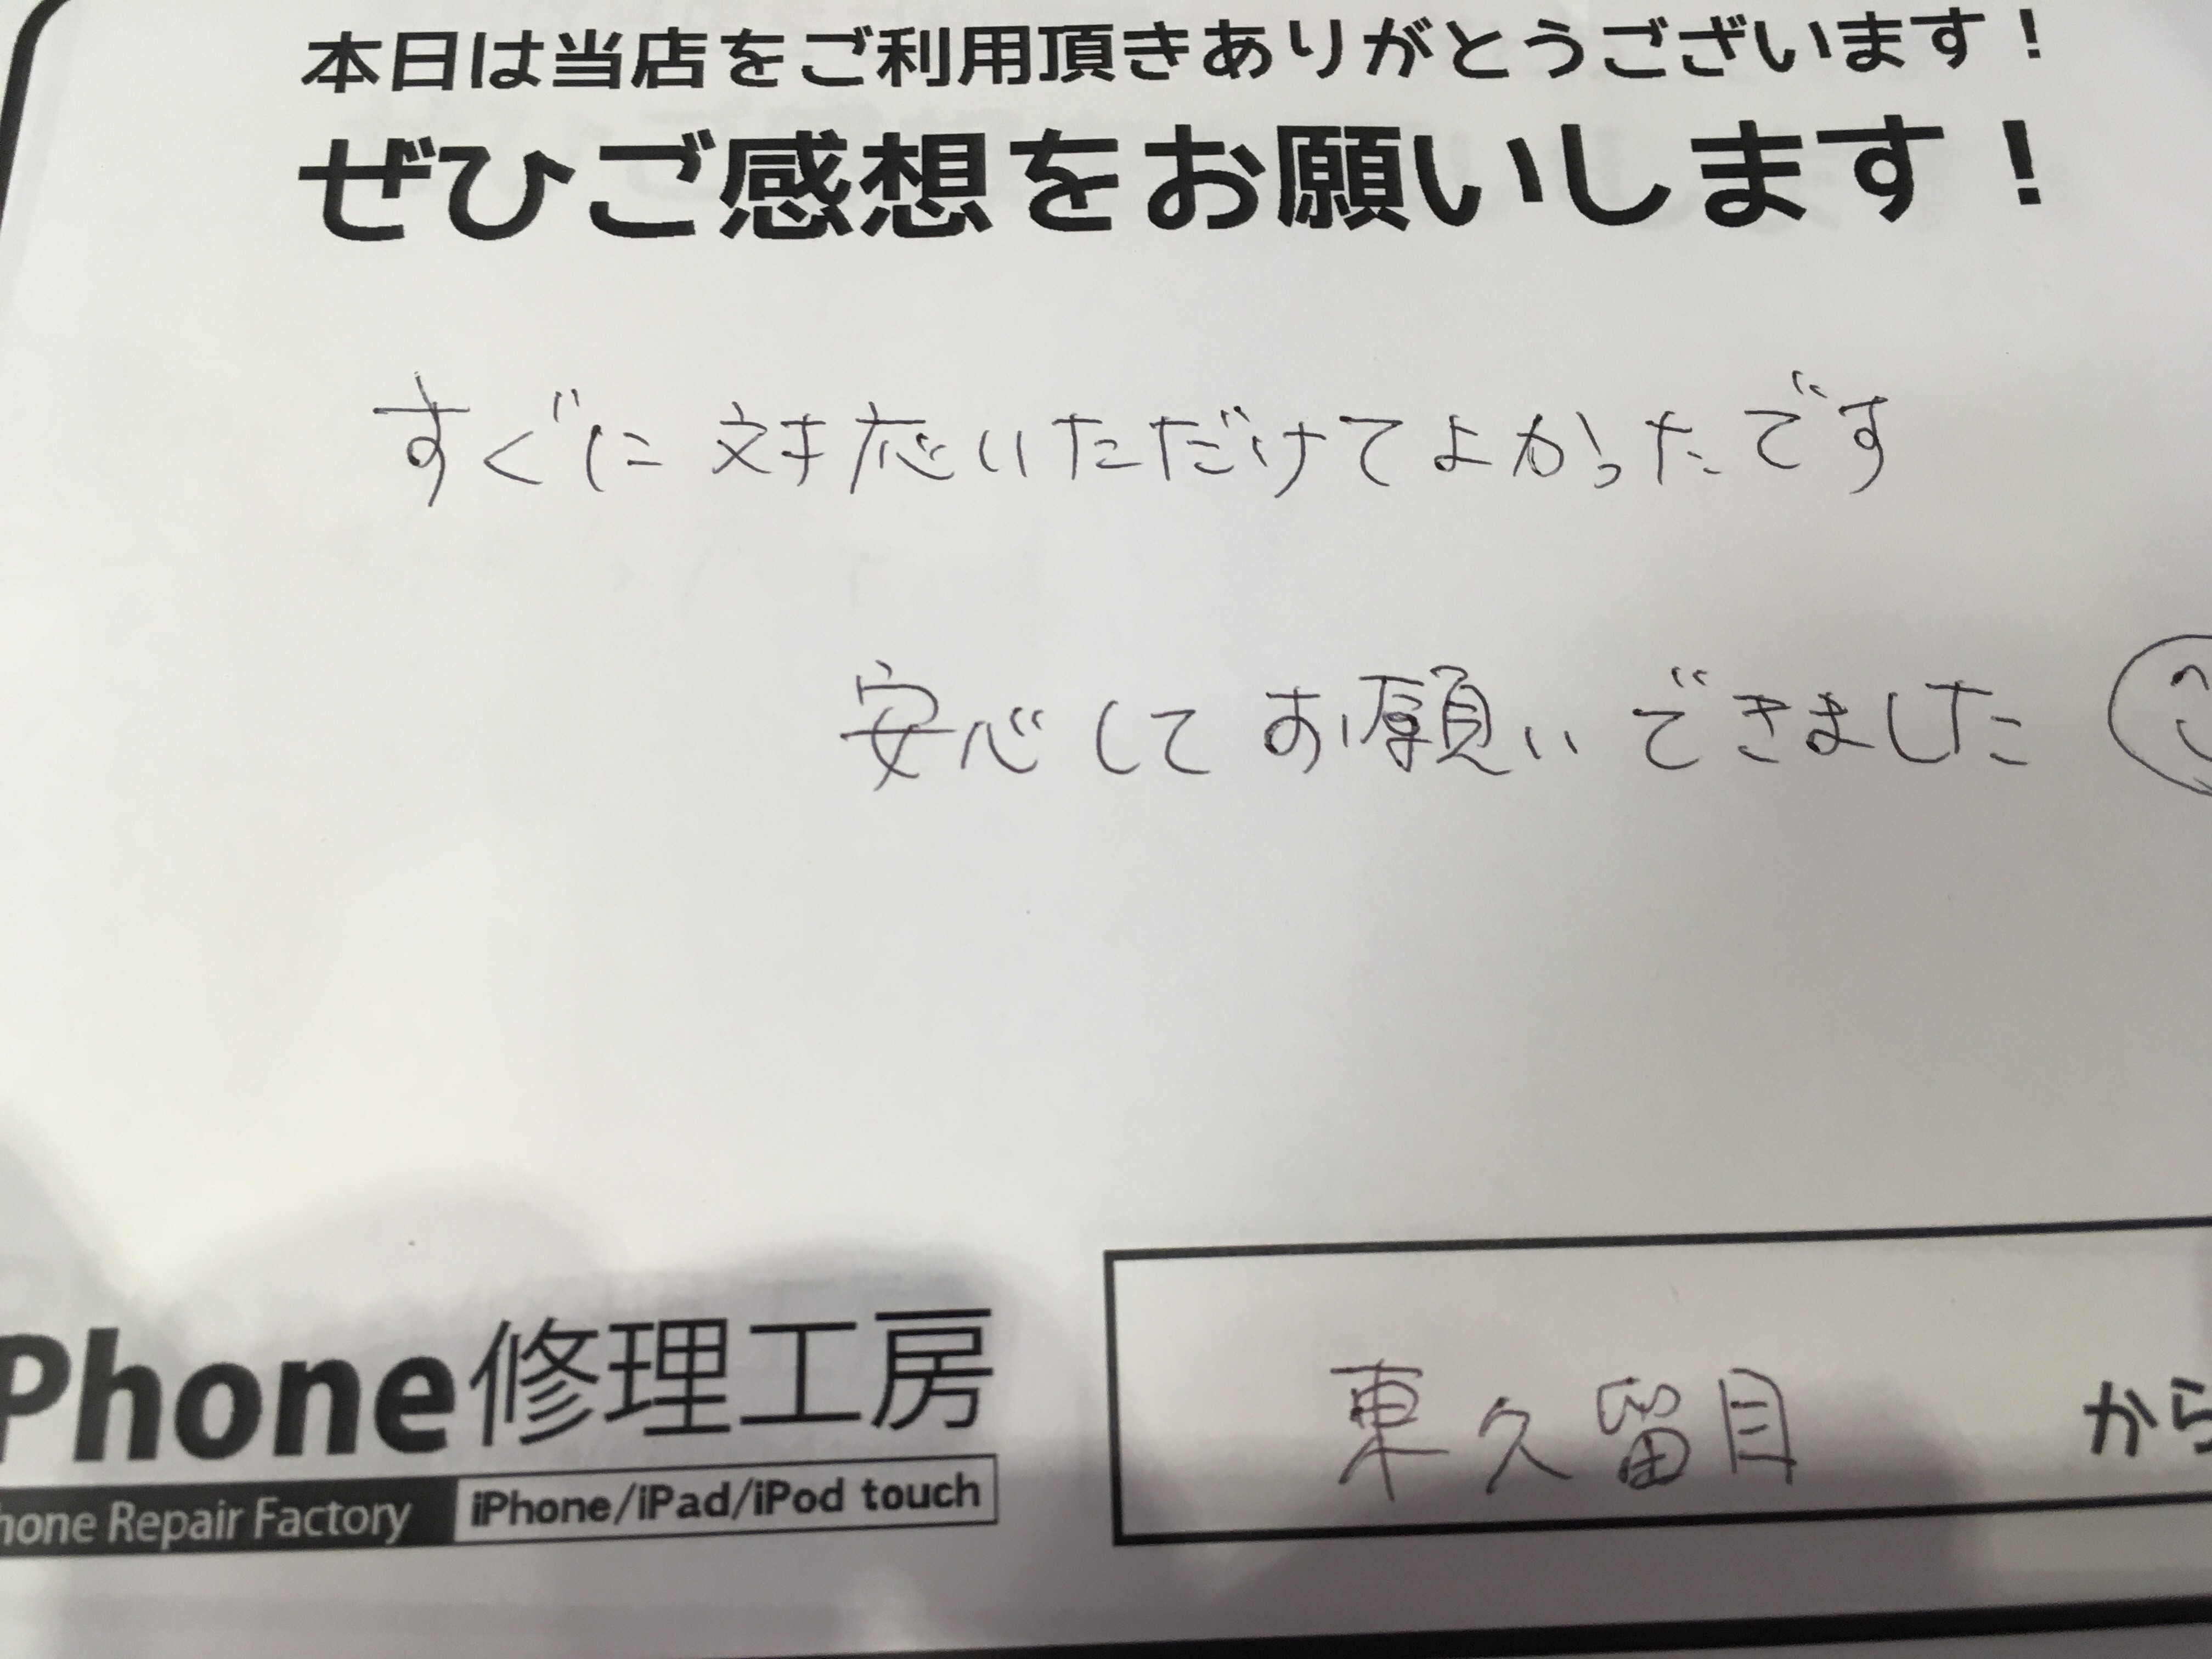 本日は当店をご利用頂きありがとうございます！
ぜひご感想をお願いします！
すぐに対応いただけてよかったです
安心してお願いできました
Phone修理工房
hone Repair Factory
iPhone/iPad/iPod touch
東久留目
から